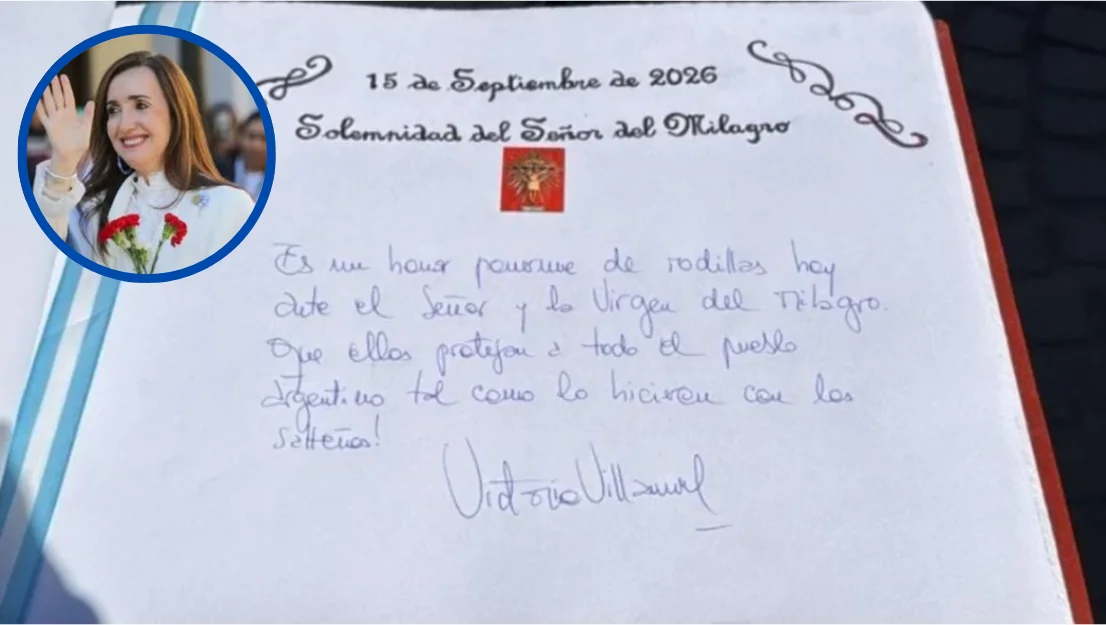 15 de Septiembre de 2026
Solemnidad del Señor del Milagro
Es un honor ponerme de rodillas hoy
ante el Señor y la Virgen del Milagro.
Que ellos protejan a todo el pueblo
argentino tal como lo hicieron con los
salteños!
Victoria Villarruel